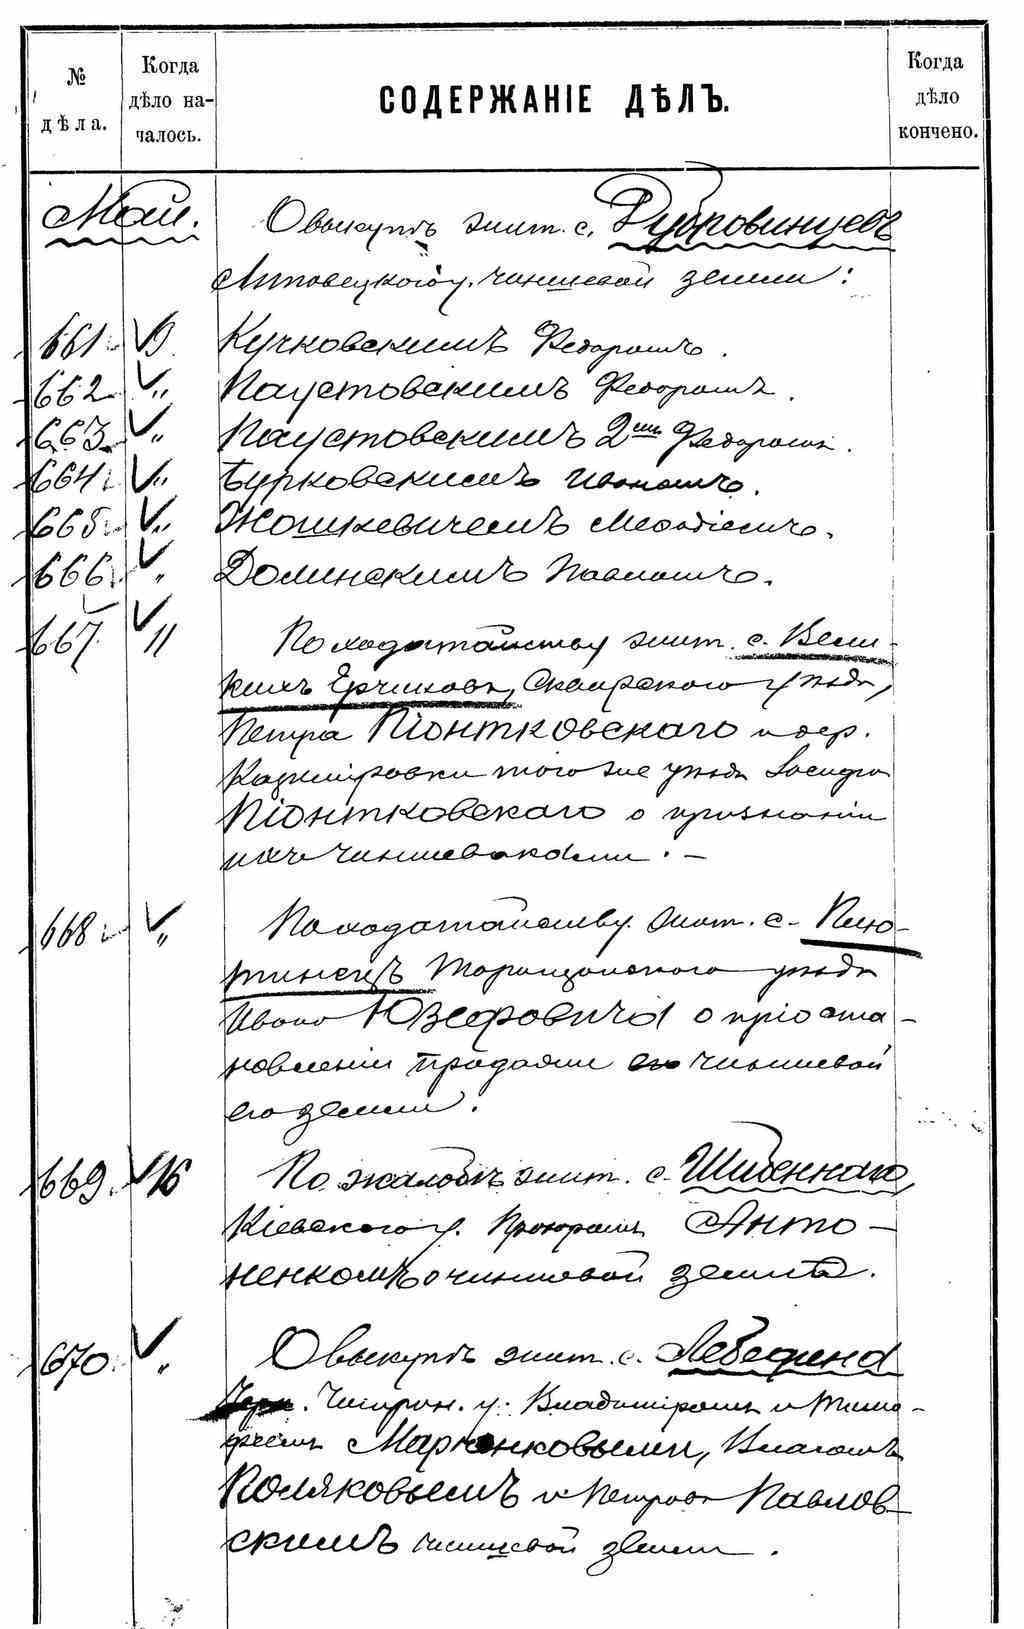 № дѣла.
Когда дѣло на-
чалось.
СОДЕРЖАНІЕ ДѢЛЪ.
Когда дѣло кончено.
Май.
О выкупѣ жит. с. Дубровинцевъ
Липовецкого у. чиншевой земли:
661 9 Кучковскимъ Федоромъ.
662 " Паустовскимъ Федоромъ.
663 " Паустовскимъ 2мъ Федоромъ.
664 " Бурковскимъ Иваномъ.
665 " Жошкевичемъ Мефодіемъ.
666 " Долинскимъ Павломъ.
667 11 По ходатайству жит. с. Вели-
кихъ Ерчиковъ, Сквирского уѣзда,
Петра Піонтковскаго и дер.
Казиміровки того же уѣзда
Піонтковскаго о признаніи
ихъ чиншевиками. —
668 " По ходатайству жит. с. Плю-
тинецъ Таращанского уѣзда
Ивана Юзефовича о пріоста-
новленіи продажи чиншевой
его земли.
669 16 По жалобѣ жит. с.
Кіевского у. Прохоромъ Анто-
ненкомъ о чиншевой землѣ.
670 " О выкупѣ жит. с. Лебедина
Чигрин. у. Владиміромъ и Тимо-
феемъ Марченковыми, Власомъ
Поляковымъ и Петромъ Павлов-
скимъ чиншевой земли.